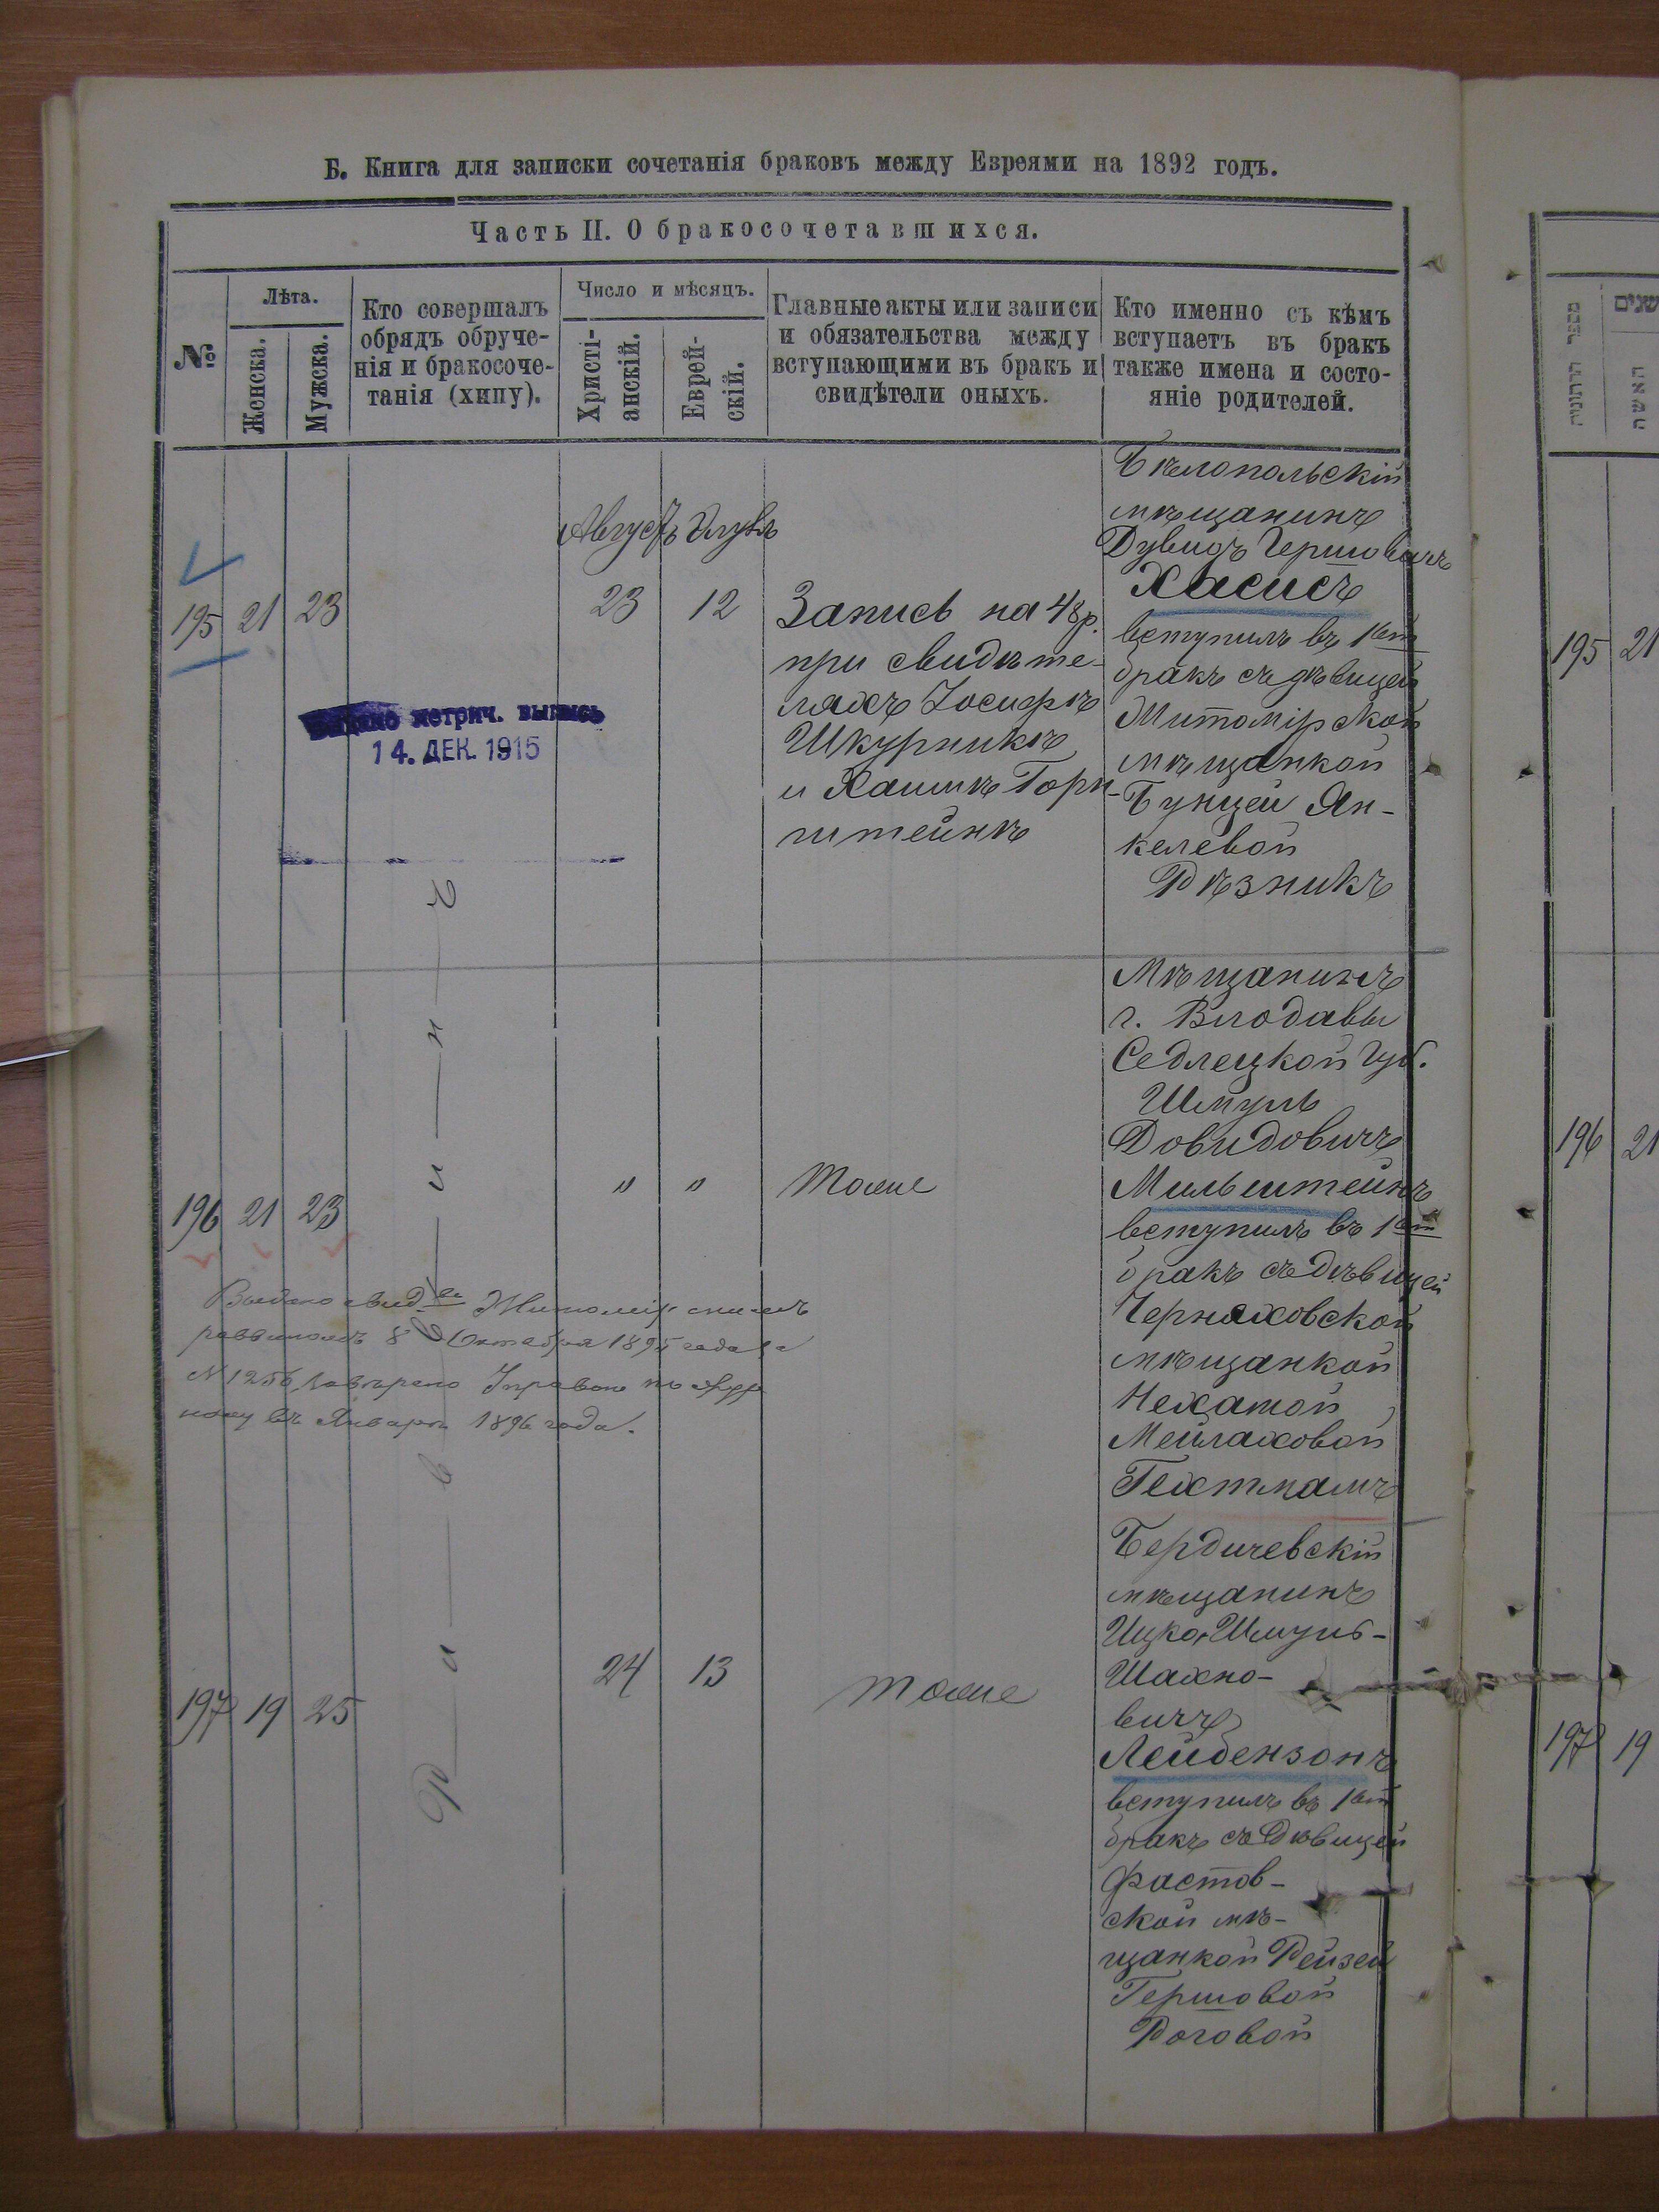 Б. Книга для записки сочетанія браковъ между Евреями на 1892 годъ.
Часть II. О бракосочетавшихся.
№
Лѣта.
Женска.
Мужска.
Кто совершалъ
обрядъ обруче-
нія и бракосоче-
танія (хипу).
Число и мѣсяцъ.
Христі-
анскій.
Еврей-
скій.
Главные акты или записи
и обязательства между
вступающими въ бракъ и
свидѣтели оныхъ.
Кто именно съ кѣмъ
вступаетъ въ бракъ
также имена и состо-
яніе родителей.
Августъ Элулъ
195 21 23
23 12
Запись на 48 р.
при свидѣте-
ляхъ Іосифѣ
Шкурникѣ
и Хаимѣ Горн-
штейнѣ
Бѣлопольскій
мѣщанинъ
Дувидъ Гершовичъ
Хасисъ
вступилъ въ 1ый
бракъ съ дѣвицей
Житомірской
мѣщанкой
Бунцей Ян-
келевой
Рѣзникъ
Выдано метрич. выпись
14. ДЕК. 1915
Раввинъ
196 21 23
" "
Тоже
Мѣщанинъ
г. Влодавы
Седлецкой Губ.
Шмуль
Довидовичъ
Мильштейнъ
вступилъ въ 1ый
бракъ съ дѣвицей
Черняховской
мѣщанкой
Нехамой
Мейлаховой
Гехтманъ
Выдано свид-во Житомірскимъ
раввиномъ 8 Октября 1895 года за
N 1256
въ Январѣ 1896 года.
197 19 25
24 13
Тоже
Бердичевскій
мѣщанинъ
Ицко, Шмуль-
Шахно-
вичъ
Лейбензонъ
вступилъ въ 1ый
бракъ съ дѣвицей
Фастов-
ской мѣ-
щанкой Рейзей
Гершовой
Роговой
195 21
196 21
197 19